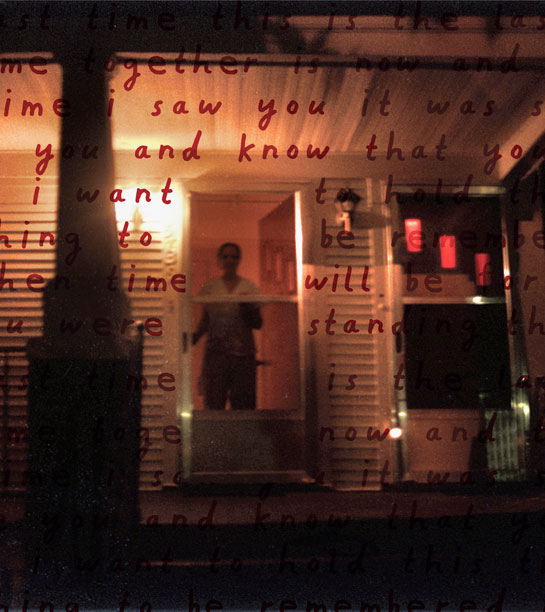 ast time this is the las
me together is now and
ime i saw you it was s
you and know that you
i want to hold th
hing to be remembe
hen time will be for
u were standing th
ast time is the las
me toge now and t
ime i s it was s
you and know that yo
i want to hold this ti
hing to be remembered